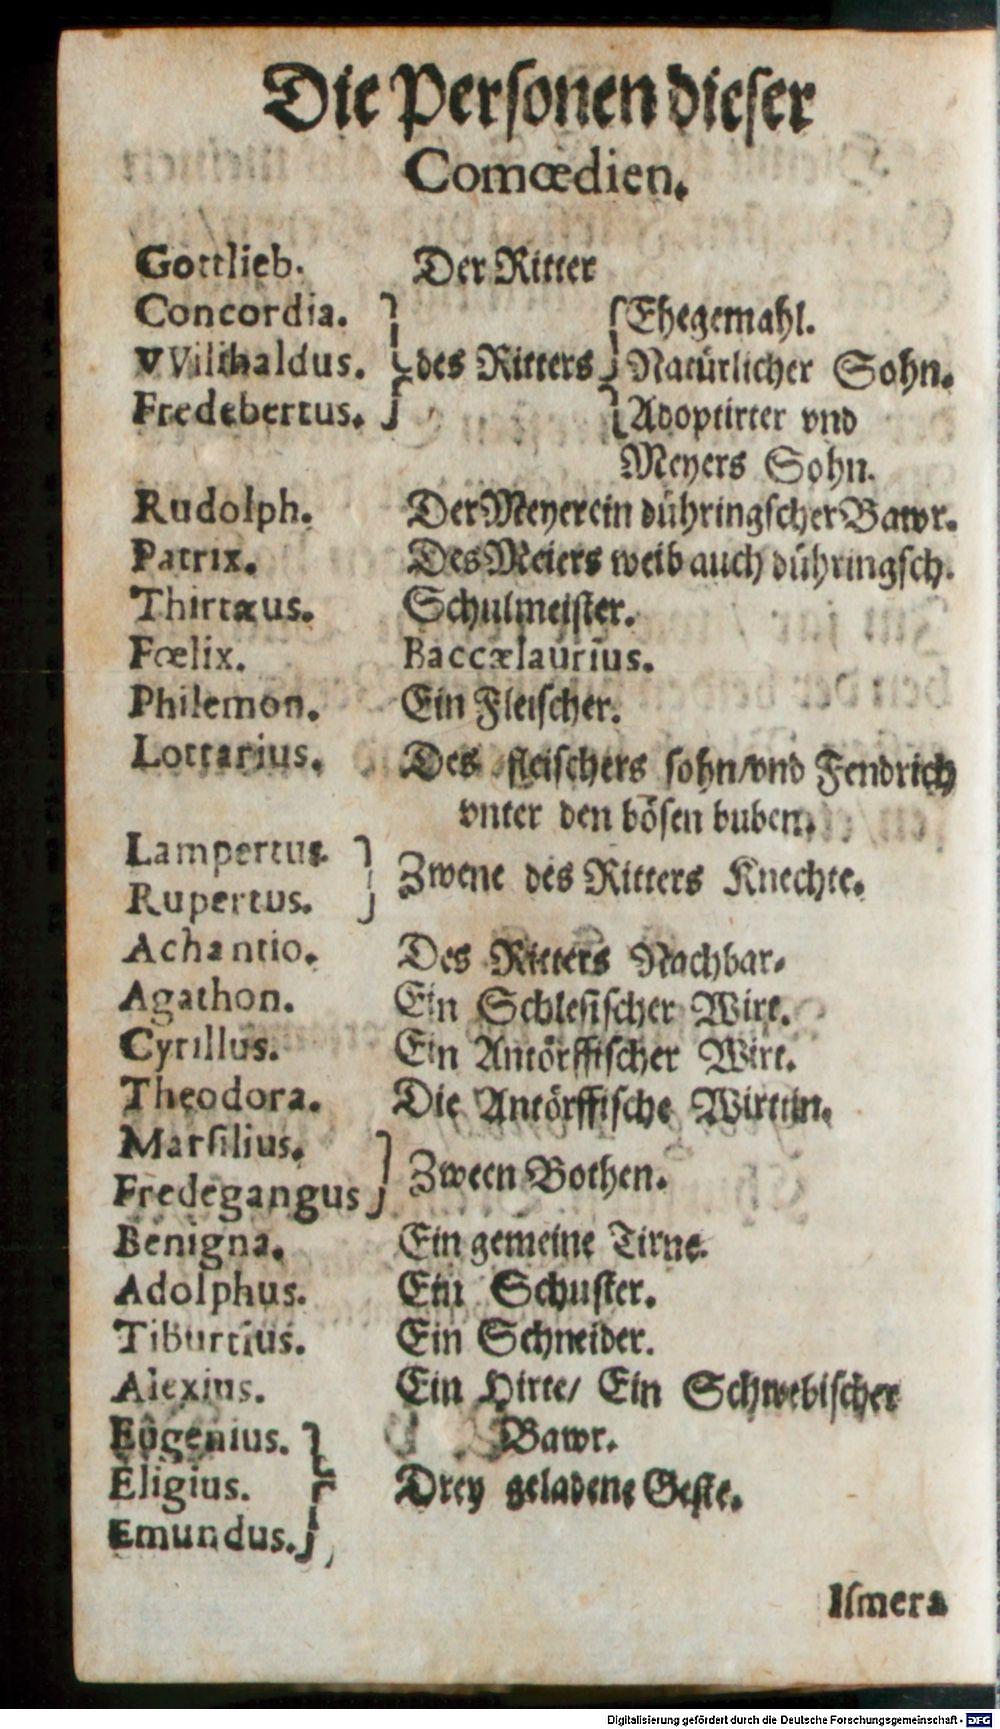 Die Perſonen dieſer
Comœdien.
Gottlieb. Der Ritter
Concordia. Ehegemahl.
VVilibaldus. des Ritters Natürlicher Sohn.
Fredebertus. Adoptirter vnd
Meyers Sohn.
Rudolph. Der Meyer ein dühringſcher Bawr.
Patrix. Des Meiers weib auch dühringſch.
Thirtæus. Schulmeiſter.
Fœlix. Baccælaurius.
Philemon. Ein Fleiſcher.
Lottarius. Des fleiſchers ſohn/vnd Fendrich
vnter den böſen buben.
Lampertus.
Zwene des Ritters Knechte.
Rupertus.
Achantio. Des Ritters Nachbar.
Agathon. Ein Schleſiſcher Wirt.
Cyrillus. Ein Antörffiſcher Wirt.
Theodora. Die Antörffiſche Wirttin.
Marſilius.
Zween Bothen.
Fredegangus
Benigna. Ein gemeine Tirne.
Adolphus. Ein Schuſter.
Tiburtius. Ein Schneider.
Alexius. Ein Hirte/ Ein Schwebiſcher
Eugenius. Bawr.
Eligius. Drey geladene Geſte.
Emundus.
Iſmera
Digitalisierung gefördert durch die Deutsche Forschungsgemeinschaft - DFG